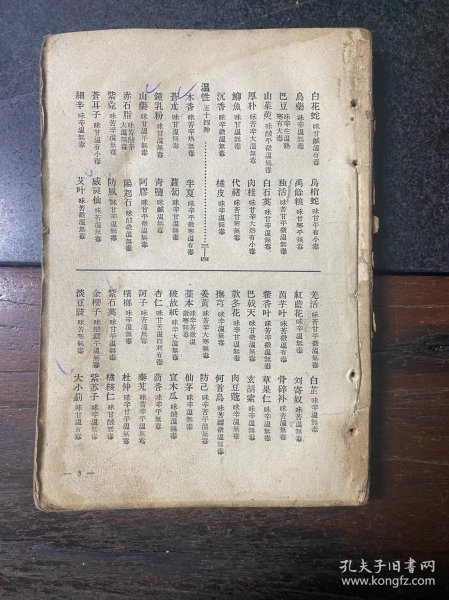 白花蛇 味甘鹹溫有毒 烏梢蛇 味甘平有小毒
烏藥 味辛溫無毒 禹餘粮 味甘寒平無毒
巴豆 味辛生溫熟寒有大毒 独活 味苦甘平微溫無毒
山茱萸 味酸平微溫無毒 白石英 味甘辛微溫無毒
厚朴 味苦辛大溫無毒 肉桂 味甘辛大熱有小毒
鯽魚 味甘溫無毒 代赭 味苦甘寒無毒
沉香 味辛微溫無毒 橘皮 味辛溫無毒
溫性 五十四种
木香 半夏 味辛平微寒溫有毒
蒼朮 味甘溫無毒 蘿蔔 味辛甘溫無毒
鐘乳粉 味甘溫無毒 青鹽 味鹹溫無毒
山藥 味甘溫平無毒 阿膠 味甘平微溫無毒
赤石脂 陽起石 味鹹微溫無毒
紫菀 味苦辛溫無毒 防風 味甘辛溫無毒
蒼耳子 味甘溫有小毒 威灵仙 味苦溫無毒
細辛 味辛溫無毒 艾叶 味苦微溫無毒
羌活 味苦甘平微溫無毒 白芷 味辛溫無毒
紅藍花 味辛溫無毒 刘寄奴 味苦溫無毒
茵芋叶 味苦微溫有毒 骨碎补 味苦溫無毒
藿香叶 味辛微溫無毒 草果仁 味辛溫無毒
巴戟天 味辛甘微溫無毒 玄胡索 味辛溫無毒
款冬花 味辛甘溫無毒 肉豆蔻 味辛溫無毒
撫芎 味辛溫無毒 何首烏 味苦澀微溫無毒
姜黃 味辛苦大寒無毒 防己 味辛苦平溫無毒
藁本 味辛苦微溫微寒無毒 仙茅 味辛溫有毒
破故紙 味辛大溫無毒 宣木瓜 味酸溫無毒
杏仁 味甘苦溫冷利有毒 茴香 味辛平無毒
訶子 味苦溫無毒 秦艽 味苦辛平溫無毒
檳榔 味辛溫無毒 杜仲 味辛甘平溫無毒
紫石英 味甘辛溫無毒 橘核仁 味甘酸溫無毒
金櫻子 紫苏子 味辛溫無毒
淡豆豉 味苦寒無毒 大小薊 味甘溫有毒
— 3 —
孔夫子旧书网
www.kongfz.com